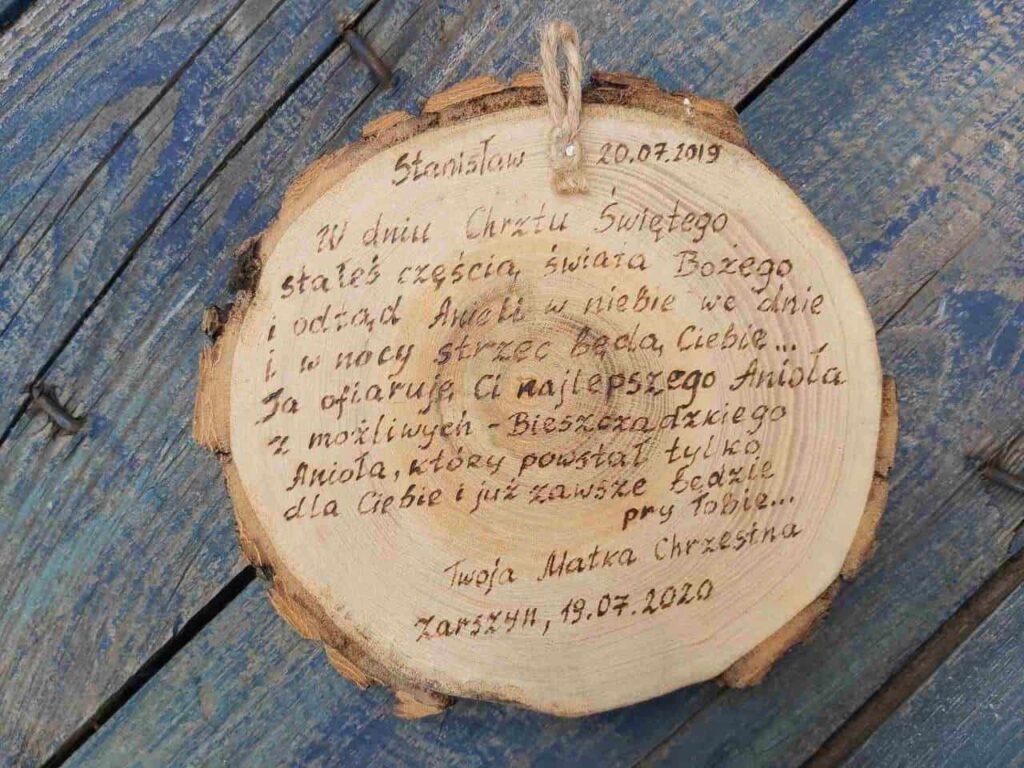 Stanisław 20.07.2019
W dniu Chrztu Świętego
stałeś częścią świata Bożego
i odtąd Anieli w niebie we dnie
i w nocy strzec będą Ciebie...
Ja ofiaruję Ci najlepszego Anioła
z możliwych - Bieszczadzkiego
Anioła, który powstał tylko
dla Ciebie i już zawsze będzie
pry Tobie...
Twoja Matka Chrzestna
Zarszyn, 19.07.2020